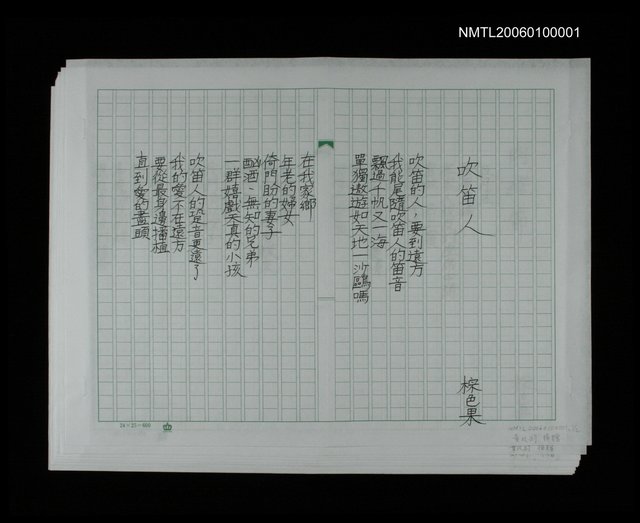 NMTL20060100001
吹笛人
棕色果
吹笛的人，要到遠方
我能尾隨吹笛人的笛音
飄過千帆又一海
單獨遨遊如天地一沙鷗嗎
在我家鄉
年老的婦女
倚門盼的妻子
酗酒、無知的兄弟
一群嬉戲天真的小孩
吹笛人的跫音更遠了
我的愛不在遠方
要從最身邊播植
直到愛的盡頭
24×25=600